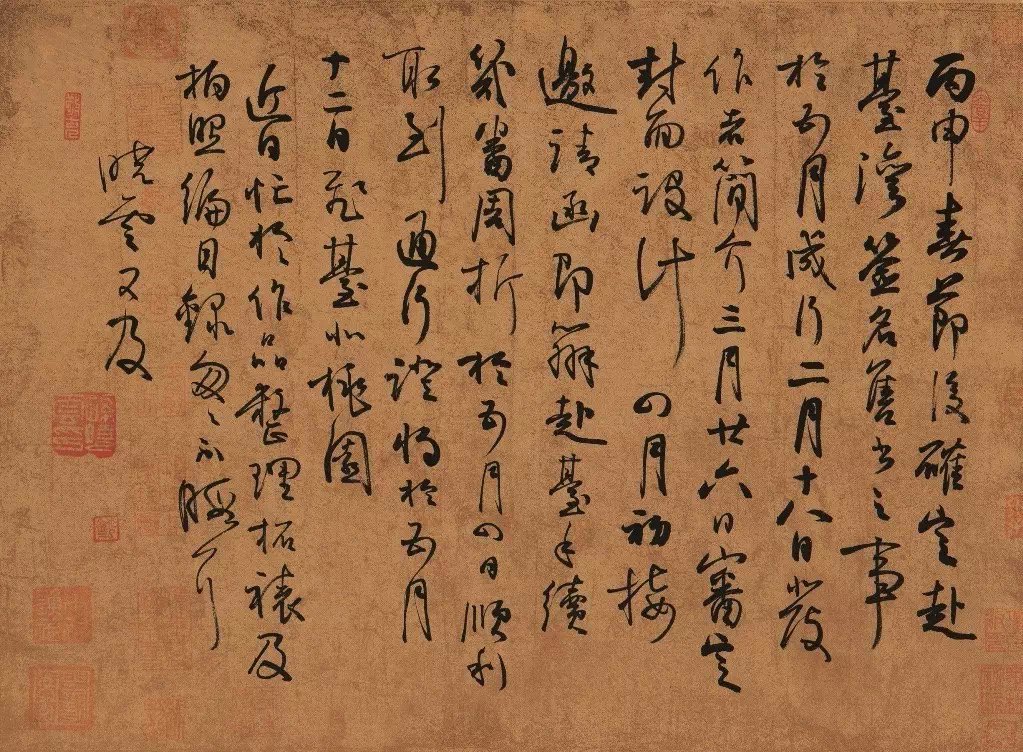 丙申春節後確定赴
臺灣簽名售書之事
於五月成行二月十八日發
作者簡介三月廿六日審定
封面設計四月初接
邀請函即辦赴臺手續
幾番周折於五月四日順利
取到通行證將於五月
十二日飛臺北桃園
近日忙於作品整理拓裱及
拍照編目錄匆匆不
曉雲又及